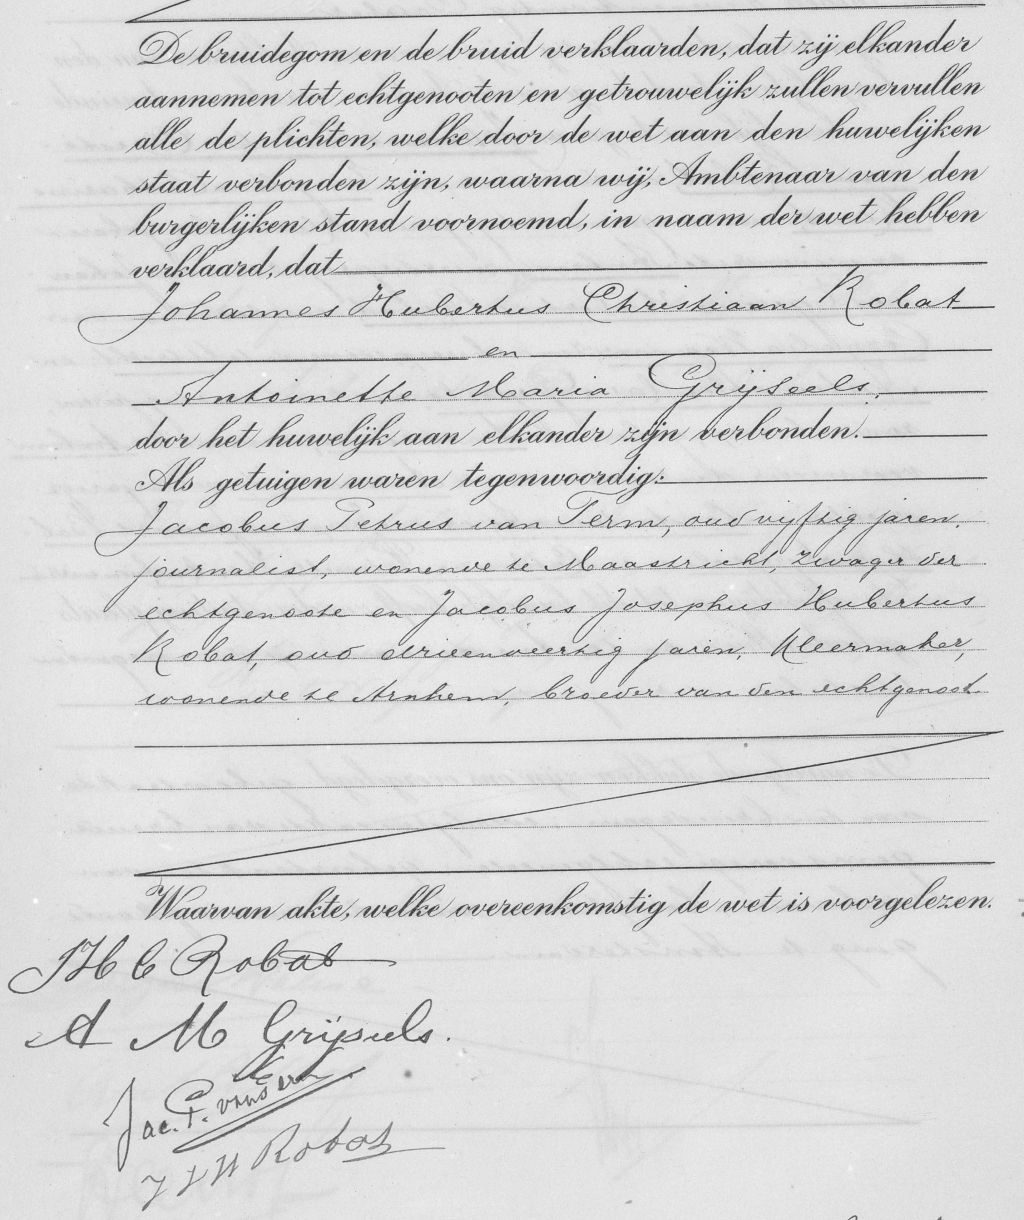 De bruidegom en de bruid verklaarden, dat zij elkander
aannemen tot echtgenooten en getrouwelijk zullen vervullen
alle de plichten, welke door de wet aan den huwelijken
staat verbonden zijn, waarna wij, Ambtenaar van den
burgerlijken stand voornoemd, in naam der wet hebben
verklaard, dat
Johannes Hubertus Christiaan Robat
en
Antoinette Maria Grijseels,
door het huwelijk aan elkander zijn verbonden.
Als getuigen waren tegenwoordig:
Jacobus Petrus van Term, oud vijftig jaren,
journalist, wonende te Maastricht, zwager der
echtgenoote en Jacobus Josephus Hubertus
Robat, oud drieenveertig jaren, kleermaker,
wonende te Arnhem, broeder van den echtgenoot
Waarvan akte, welke overeenkomstig de wet is voorgelezen.
J H C Robat
A M Grijseels.
Jac. P. van Term
J J H Robat